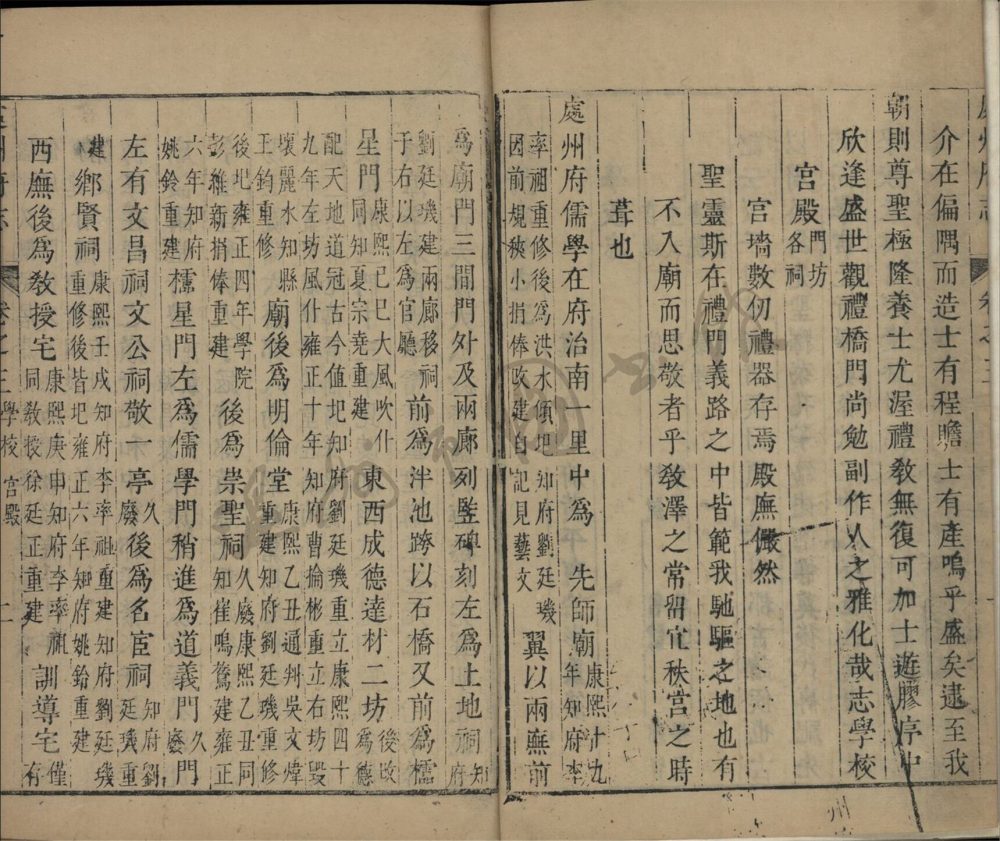 介在偏隅而造士有程贍士有產嗚乎盛矣逮至我
朝則尊聖極隆養士尤渥禮教無復可加士遊膠庠中
欣逢盛世觀禮橋門尚勉副作人之雅化哉志學校
宮殿門坊各祠
宮墻數仞禮器存焉殿廡儼然
聖靈斯在禮門義路之中皆範我馳驅之地也有
不入廟而思敬者乎教澤之常留宜秩宮之時
葺也
處州府儒學在府治南一里中爲先師廟康熙十九年知府李
率祖重修後爲洪水傾圯知府劉廷璣因前規狹小捐俸改建自記見藝文翼以兩廡前
爲廟門三間門外及兩廊列監碑刻左爲土地祠知府
劉廷璣建兩廊移祠于右以左爲官廳前爲泮池跨以石橋又前爲櫺
星門康熙己巳大風吹什同知夏宗堯重建東西成德達材二坊後改爲德
配天地道冠古今值圯知府劉廷璣重立康熙四十九年左坊風什雍正十年知府曹掄彬重立右坊毀
壞麗水知縣王鈞重修廟後爲明倫堂康熙乙丑通判吳文煒重建知府劉廷璣重修
後圯雍正四年學院彭維新捐俸重建後爲崇聖祠久廢康熙乙丑同知崔鳴鷟建雍正
六年知府姚鈴重建櫺星門左爲儒學門稍進爲道義門久廢門
左有文昌祠文公祠敬一亭久廢後爲名宦祠知府劉廷璣重
建鄉賢祠康熙壬戌知府李率祖重建知府劉廷璣重修後皆圯雍正六年知府姚鈴重建
西廡後爲教授宅康熙庚申知府李率祖同教授徐廷正重建訓導宅僅有
處州府志
卷之三
學校
宮殿
二